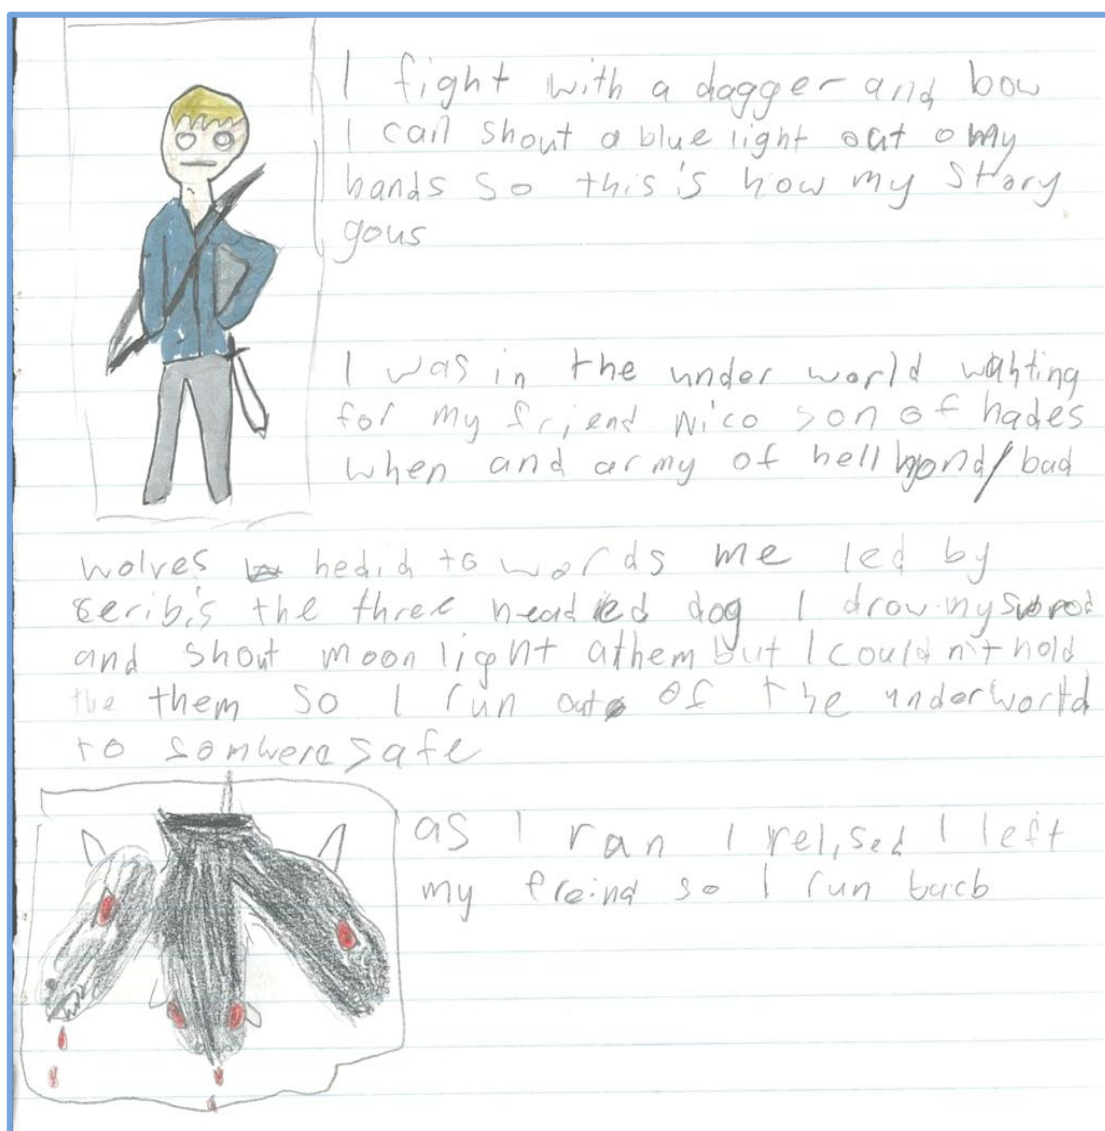 I fight with a dagger and bow
I can shout a blue light out o my
hands so this is how my story
gous
I was in the under world wahting
for my friend Nico son of hades
when and army of hell hond/bad
wolves hedid to words me led by
ceribis the three headed dog I drow my sword
and shout moon light athem but I couldn't hold
the them so I run out of the underworld
to somwere safe
as I ran I relised I left
my freind so I run back